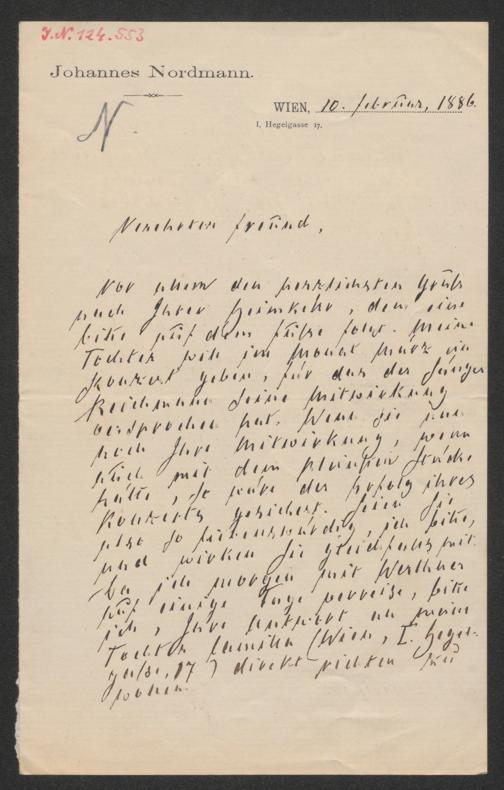 J.N. 124.553
Johannes Nordmann.
N.
WIEN, 10. Februar, 1886.
I, Hegelgasse 17.
Verehrter Freund,
Vor allem den herzlichsten Gruß
nach Ihrer Heimkehr, dem eine
Bitte auf dem Fuße folgt. Meine
Tochter will im Monat März ein
Konzert geben, für das der Sänger
Reichmann seine Mitwirkung
versprochen hat. Wenn sie nun
noch Ihre Mitwirkung, wenn
auch mit dem kleinsten Stücke
hätte, so wäre der Erfolg ihres
Konzerts gesichert. Seien Sie
also so liebenswürdig, ich bitte,
und wirken Sie gleichfalls mit.
Da ich morgen mit Werthner
auf einige Tage verreise, bitte
ich, Ihre Antwort an meine
Tochter Camilla (Wien, I. Hegel-
gasse, 17) direkt richten zu
wollen.